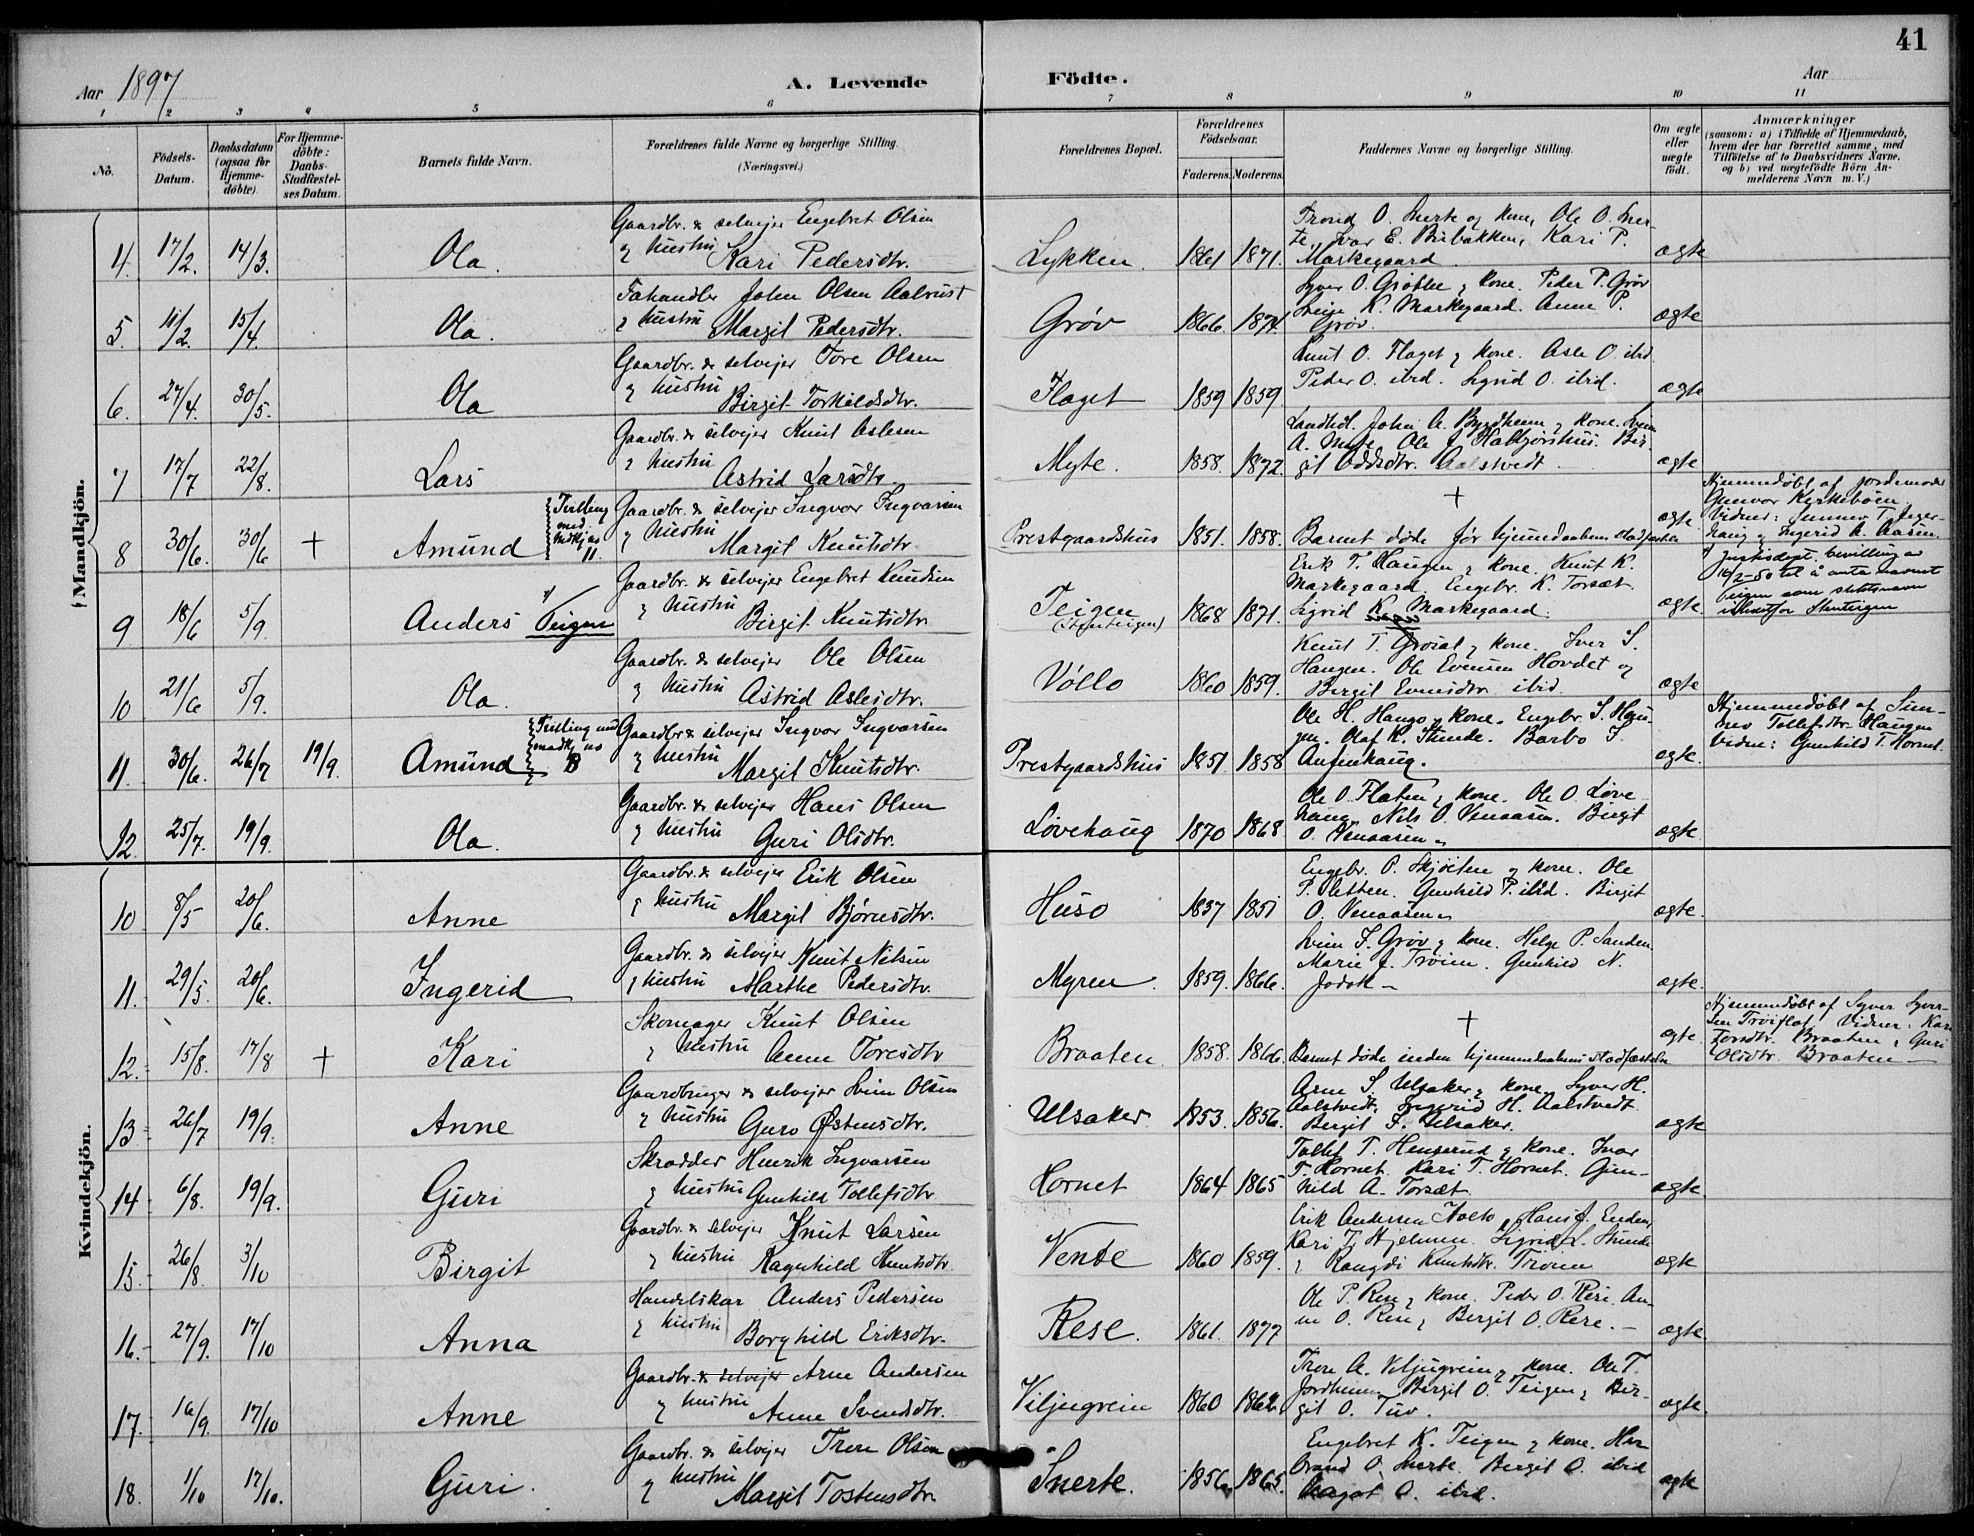 41
Aar 1897
A. Levende Födte.
Aar
1 2 3 4 5 6 7 8 9 10 11
No.
Födsels-Datum.
Daabsdatum (ogsaa for Hjemme-döbte)
For Hjemme-döbte: Daabs-Stadfæstel-ses Datum.
Barnets fulde Navn.
Forældrenes fulde Navne og borgerlige Stilling. (Næringsvei.)
Forældrenes Bopæl.
Forældrenes Födselsaar.
Faderens. Moderens.
Faddernes Navne og borgerlige Stilling.
Om ægte eller uægte født.
Anmærkninger
(saasom: a) i Tilfælde af Hjemmedaab, hvem der har forrettet samme, med Tilføielse af to Daabsvidners Navne, og b) ved uægtefødte Börn An-melderens Navn m. V.)
Mandkjön.
4. 17/2. 14/3. Ola. Gaardbr. & selvejer Engebret Olsen
& hustru Kari Pedersdtr. Lykken. 1861 1871. Trond O. Snerte og kone, Ole O. Sner-
te, Ivar E. Bribakken, Kari P.
Markegaard. ægte
5. 11/2. 15/4. Ola. Fahandler John Olsen Aalrust
& hustru Margit Pedersdtr. Grøv 1866. 1871. Syver O. Grøthe & kone. Peder P. Grøv
K. Markegaard. Anne P.
Grøv. ægte
6. 27/4. 30/5. Ola Gaardbr. & selvejer Tore Olsen
& hustru Birgit Torkildsdtr. Flaget 1859 1859. Knut O. Flaget & kone. Asle O. ibid.
Peder O. ibid. Sigrid O. ibid. ægte
7 17/7 22/8. Lars Gaardbr. & selvejer Knut Aslesen
& hustru Astrid Larsdtr. Myte. 1858. 1872. Landhdl. John A. Bygdheim & kone. Svein
A. Myte, Ole J. Halbjørshus. Bir-
git Oddsdtr. Aalstvedt. ægte
8 30/6. 30/6 + Amund Trilling med mdkj no 11. Gaardbr. & selvejer Ingvar Ingvarsen
& hustru Margit Knutsdtr. Prestgaardshus 1851. 1858. +
Barnet døde før hjemmedaabens stadfæstelse ægte Hjemmedøbt af jordemoder
Gunvor Kirkebøen.
Vidner: Sunnev T.
haug & Ingerid A. Aasen.
9 18/6 5/9. Anders Teigen Gaardbr. & selvejer Engebret Knudsen
& hustru Birgit Knutsdtr. Teigen
(Stenteigen) 1868 1871. Erik T. Haugen & kone. Knut K.
Markegaard Engebr. K. Torsæt.
Sigrid K. Markegaard. ægte Justisdept. bevilling av
16/2-50 til å anta navnet
Teigen som slektsnavn
istedetfor Stenteigen
10 21/6 5/9. Ola. Gaardbr. & selvejer Ole Olsen
& hustru Astrid Aslesdtr. Vøllo 1860 1859. Knut T. Grøset & kone. Iver S.
Haugen. Ole Evensen Hovdet og
Birgit Evensdtr. ibid ægte
11. 30/6. 26/7 19/9. Amund Trilling med mandkj no 8 Gaardbr & selvejer Ingvar Ingvarsen
& hustru Margit Knutsdtr. Prestgaardshus 1851 1858 Ole H. Haugo & kone. Engebr. S. Hau-
gen. Olaf K. Stunde. Barbo S.
Anfinhaug. ægte. Hjemmedøbt af Sun-
nev Tollefsdtr. Haugen
Vidne: Gunhild T. Hornet.
12. 25/7. 19/9. Ola. Gaardbr. & selvejer Hans Olsen
& hustru Guri Olsdtr. Løvehaug 1870 1868 Ole O. Flaten & kone. Ole O. Løve-
haug. Nils O. Venaasen. Birgit
O. Venaasen. ægte
Kvindekjön.
10 8/5 20/6. Anne Gaardbr. & selvejer Erik Olsen
& hustru Margit Bjørnsdtr. Huso 1837 1851 Engebr. P. Skjøiten og kone. Ole
P. Sletten. Gunhild P. ibid. Birgit
O. Venaasen. ægte
11. 29/5. 20/6. Ingerid Gaardbr. & selvejer Knut Nilsen
& hustru Marthe Pedersdtr. Myren. 1859. 1866. Svein S. Grøv & kone. Helge P. Sanden
Marie J. Trøim. Gunhild N.
Jodok ægte.
12. 15/8. 17/8 + Kari Skomager Knut Olsen
& hustru Anne Toresdtr Braaten 1858. 1866. +
Barnet døde inden hjemmedaabens stadfæstelse ægte Hjemmedøbt af Syver Syver-
sen Trøiflat. Vidner: Kari
Toresdtr. Braaten & Guri
Olsdtr. Braaten
13 26/7 19/9. Anne Gaardbruger & selvejer Svein Olsen
& hustru Guro Østensdtr. Ulsaker 1853. 1856. Arne S. Ulsaker & kone, Syver H.
Aalstvedt, Ingerid H. Aalstvedt
Bergit S. Ulsaker. ægte
14 6/8. 19/9. Guri Skrædder Henrik Ingvarsen
& hustru Gunhild Tollefsdtr Hornet 1864 1865 Tollef T. Hengerud & kone. Ivar
T. Hornet. Kari T. Hornet. Gun-
hild A. Torsæt. ægte.
15. 26/8. 3/10 Birgit Gaardbr. & selvejer Knut Larsen
& hustru Ragnhild Knutsdtr. Vente 1860 1859. Erik Andersen Holto, Hans J. Enden,
Kari T. Hjelmen. Sigrid L. Stunde
& Rangdi Knutsdtr. Trøim ægte
16. 27/9. 17/10 Anna Handelskar Anders Pedersen
& hustru Borghild Eriksdtr. Rese. 1861. 1877 Ole P. Rese & kone. Peder O. Rese. An-
ne O. Rese & Bergit O. Rese. ægte.
17. 16/9. 17/10 Anne Gaardbr. & selvejer Arne Andersen
& hustru Anne Svendsdtr. Viljugrein 1860 1862 A. Viljugrein & kone. Ole T.
Jordheim Bergit O. Teigen & Bir-
git O. Tuv. ægte.
18. 1/10 17/10. Guri. Gaardbr. & selvejer Tron Olsen
& hustru Margit Tostensdtr. Snerte. 1856 1865. Engebret K. Teigen & kone. Hal-
brand O. Snerte. Bergit O. ibid
Aagot O. ibid. ægte